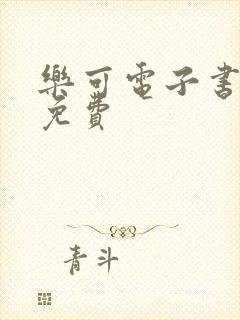 樂可電子書
免費
青斗